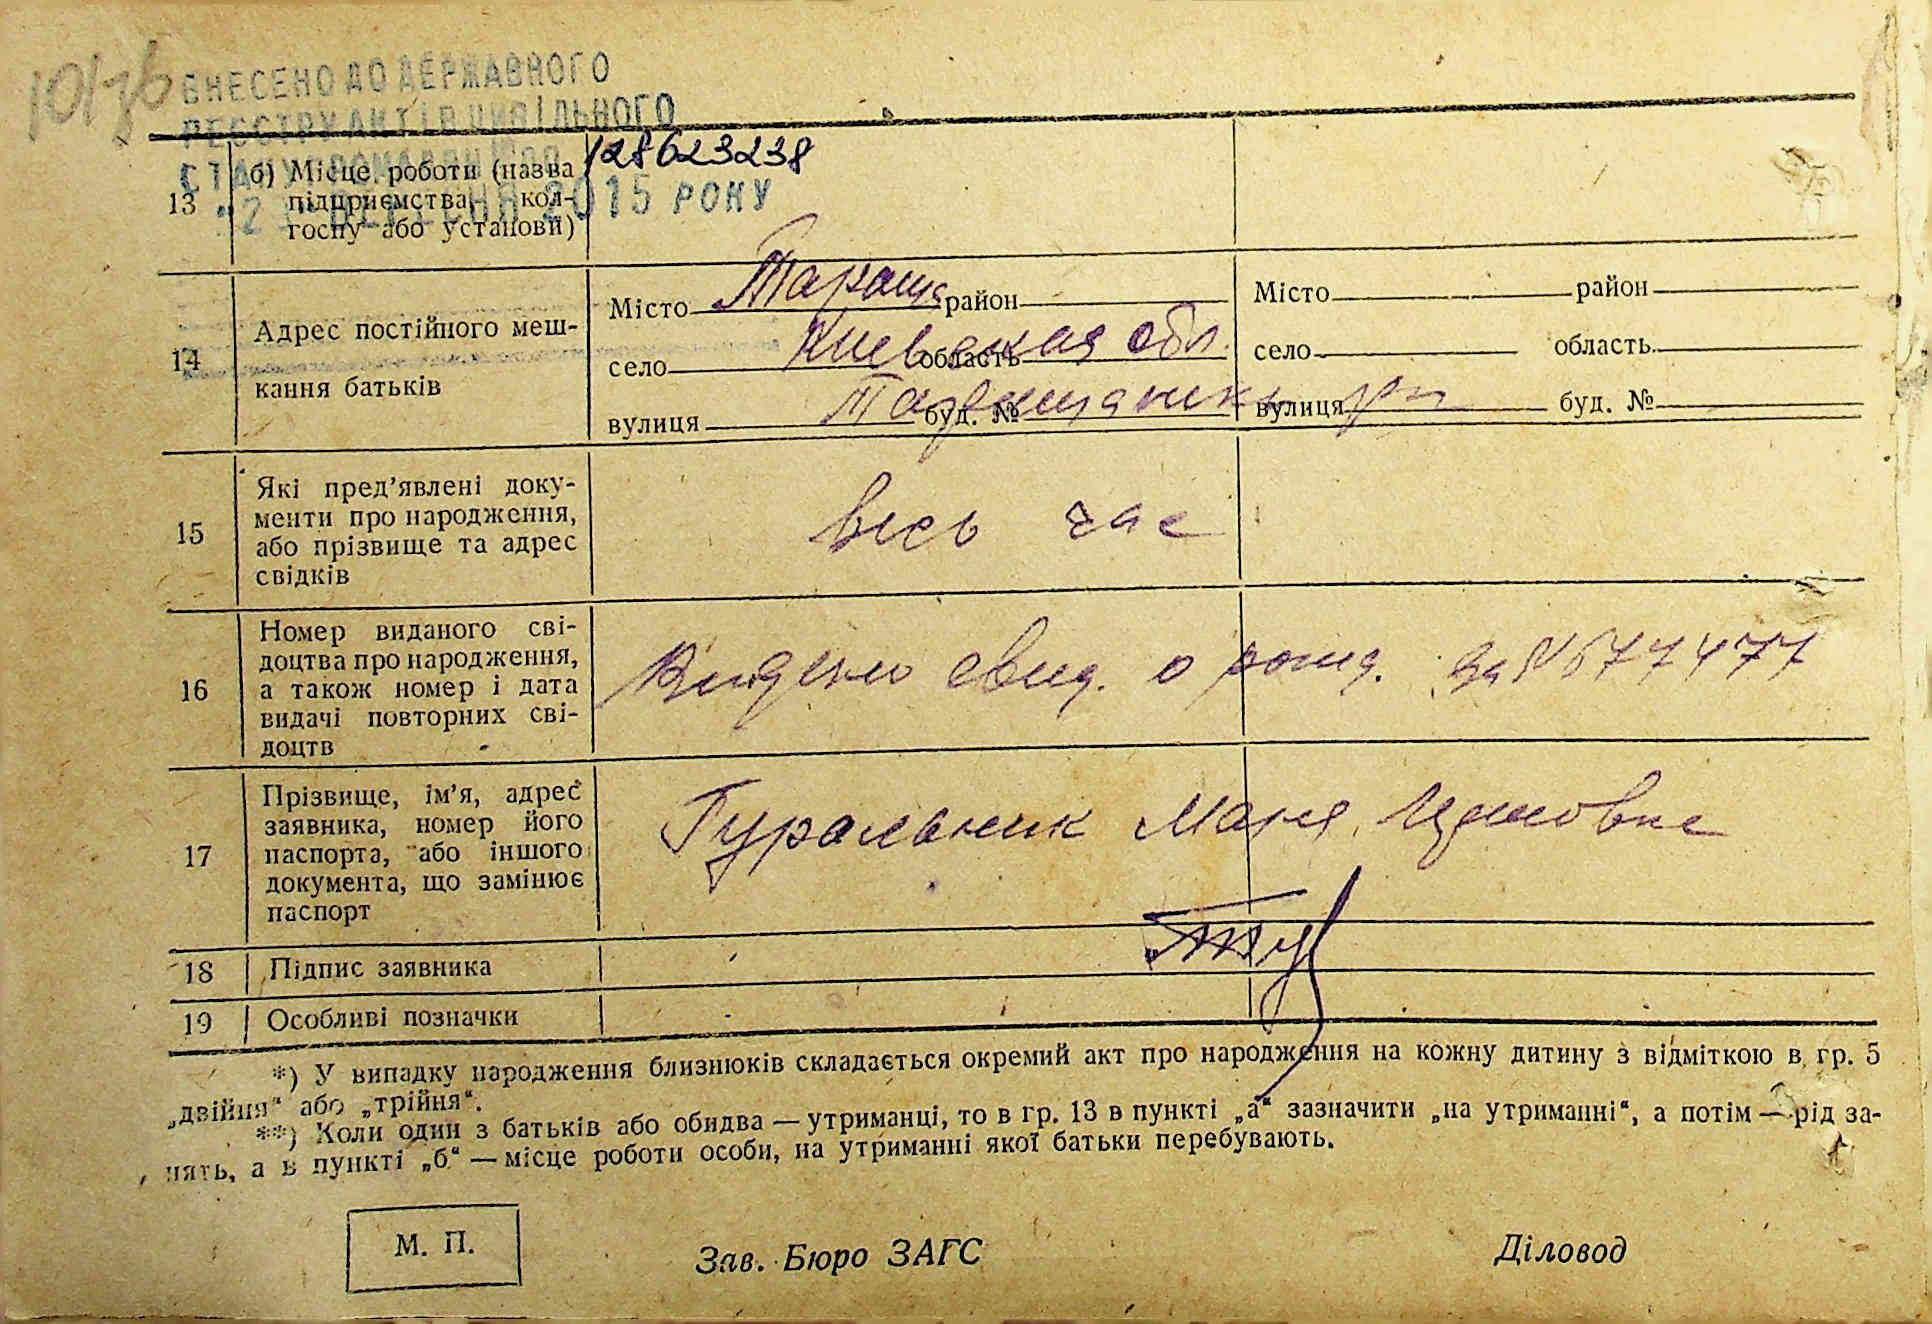 101/76
ВНЕСЕНО ДО ДЕРЖАВНОГО
РЕЄСТРУ АКТІВ ЦИВІЛЬНОГО
СТАНУ ГРОМАДЯН №
128623238
2015 РОКУ
13
б) Місце роботи (назва
підприємства, кол-
госпу або установи)
14
Адрес постійного меш-
кання батьків
Місто Тараща район
Киевская обл.
село область
вулиця буд. №
Місто район
село область
вулиця буд. №
15
Які пред’явлені доку-
менти про народження,
або прізвище та адрес
свідків
весь час
16
Номер виданого сві-
доцтва про народження,
а також номер і дата
видачі повторних сві-
доцтв
свид. о рожд. за № 677477
17
Прізвище, ім’я, адрес
заявника, номер його
паспорта, або іншого
документа, що замінює
паспорт
Гуральник Маня
18
Підпис заявника
19
Особливі позначки
*) У випадку народження близнюків складається окремий акт про народження на кожну дитину з відміткою в гр. 5
„двійня“ або „трійня“.
**) Коли один з батьків або обидва — утриманці, то в гр. 13 в пункті „а“ зазначити „на утриманні“, а потім — рід за-
нять, а в пункті „б“ — місце роботи особи, на утриманні якої батьки перебувають.
М. П.
Зав. Бюро ЗАГС
Діловод